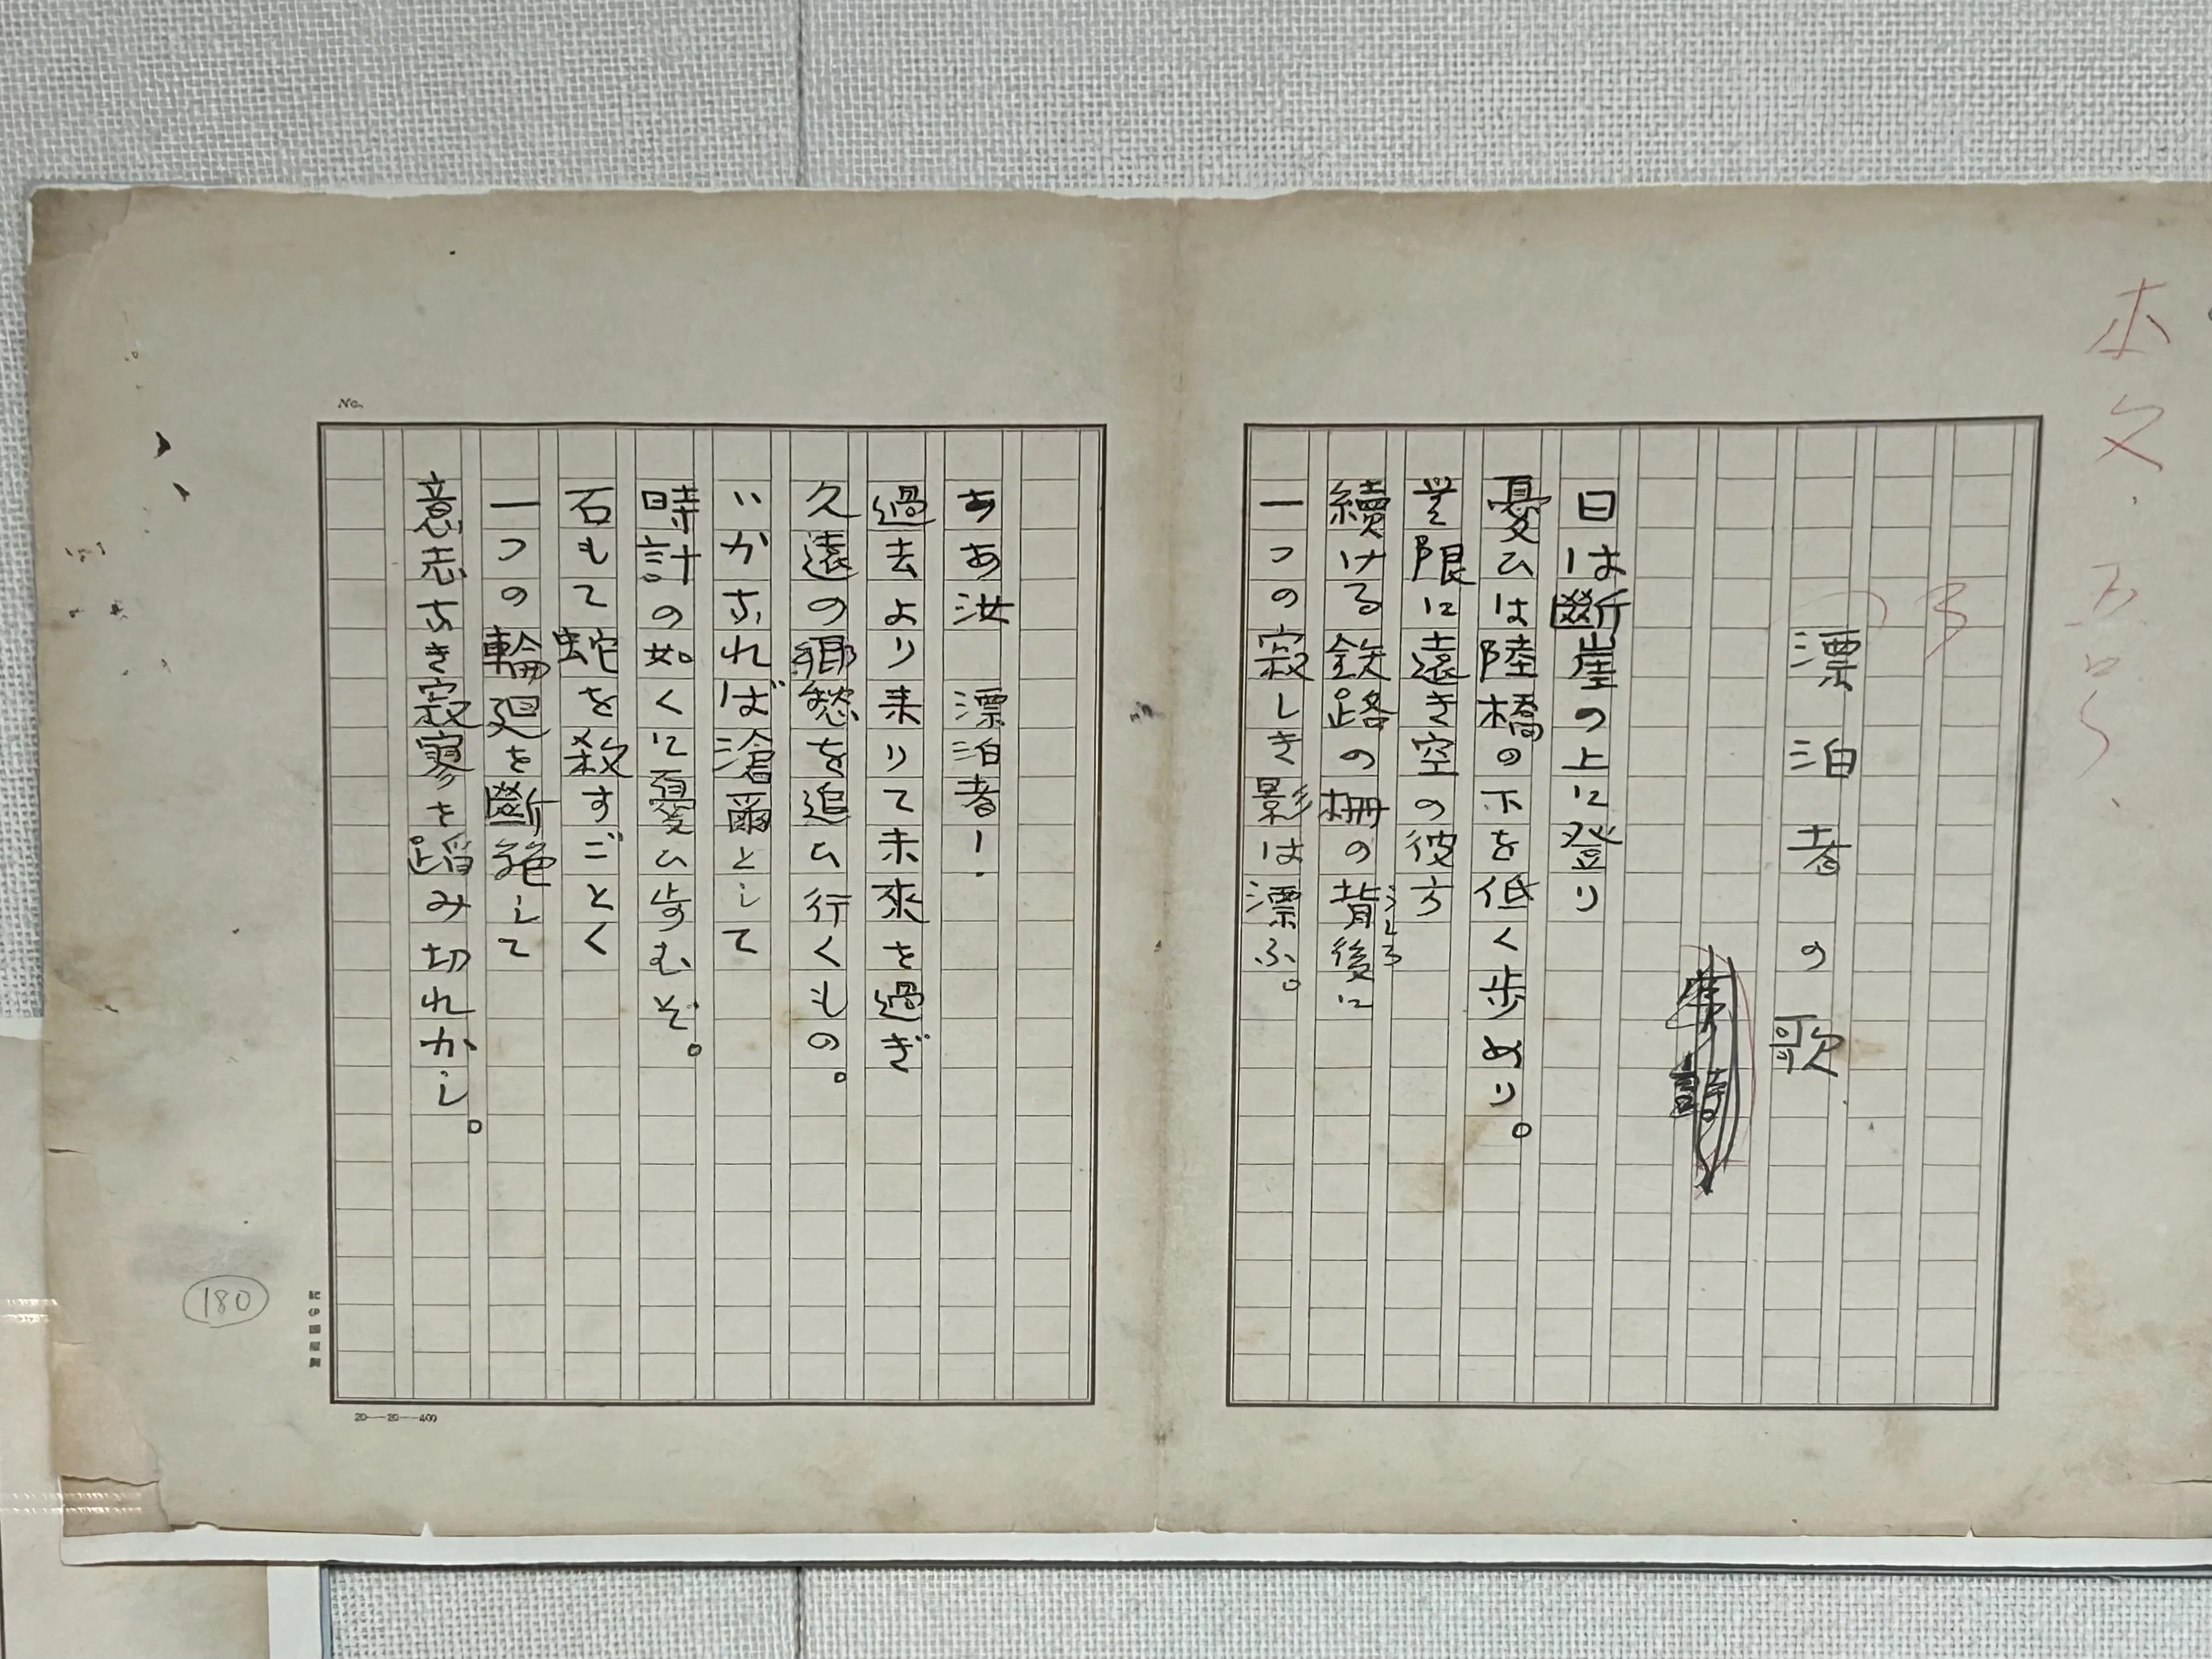 本文、五号、
漂泊者の歌
日は斷崖の上に登り
憂ひは陸橋の下を低く歩めり。
無限に遠き空の彼方
續ける鉄路の柵の背後に
うしろ
一つの寂しき影は漂ふ。
ああ汝　漂泊者！
過去より来りて未來を過ぎ
久遠の郷愁を追ひ行くもの。
いかなれば滄爾として
時計の如くに憂ひ歩むぞ。
石もて蛇を殺すごとく
一つの輪廻を斷絶して
意志なき寂寥を蹈み切れかし。
No.
20—20—400
180